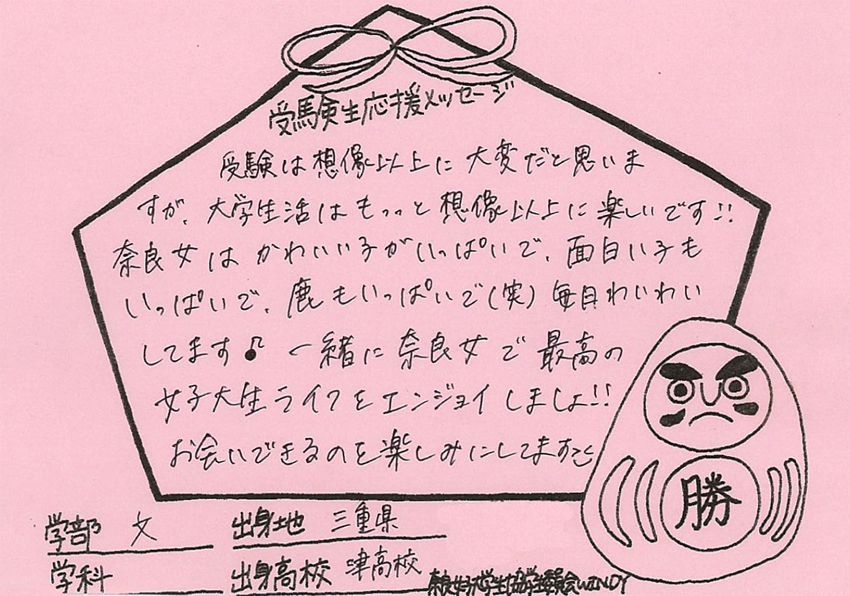 受験生応援メッセージ
受験は想像以上に大変だと思いま
すが、大学生活はもっっと想像以上に楽しいです!!
奈良女はかわいい子がいっぱいで、面白い子も
いっぱいで、鹿もいっぱいで(笑)毎日わいわい
してます♪ 一緒に奈良女で最高の
女子大生ライフをエンジョイしましょ!!
お会いできるのを楽しみにしてます
勝
学部 文 出身地 三重県
学科 出身高校 津高校
奈良女子大学生協学生委員会WINDY